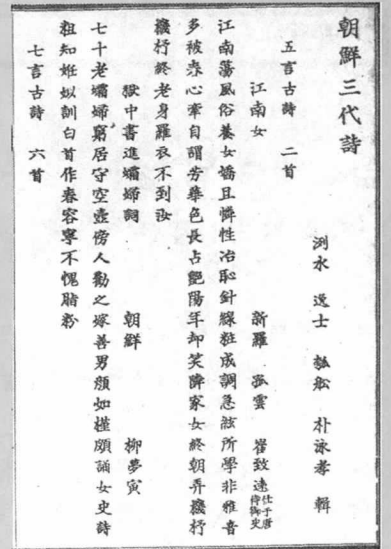 朝鮮三代詩
洌水 逸士 瓠舩 朴泳孝 輯
五言古詩 二首
江南女 新羅 孤雲 崔致遠 仕于唐侍御史
江南蕩風俗養女嬌且憐性冶恥針線粧成調急絃所學非雅音
多被春心牽自謂芳華色長占艶陽年却笑隣家女終朝弄機杼
機杼終老身羅衣不到汝
獄中書進孀婦詞 朝鮮 柳夢寅
七十老孀婦窮居守空壼傍人勸之嫁善男顔如槿頗誦女史詩
粗知姙姒訓白首作春容寧不愧脂粉
七言古詩 六首